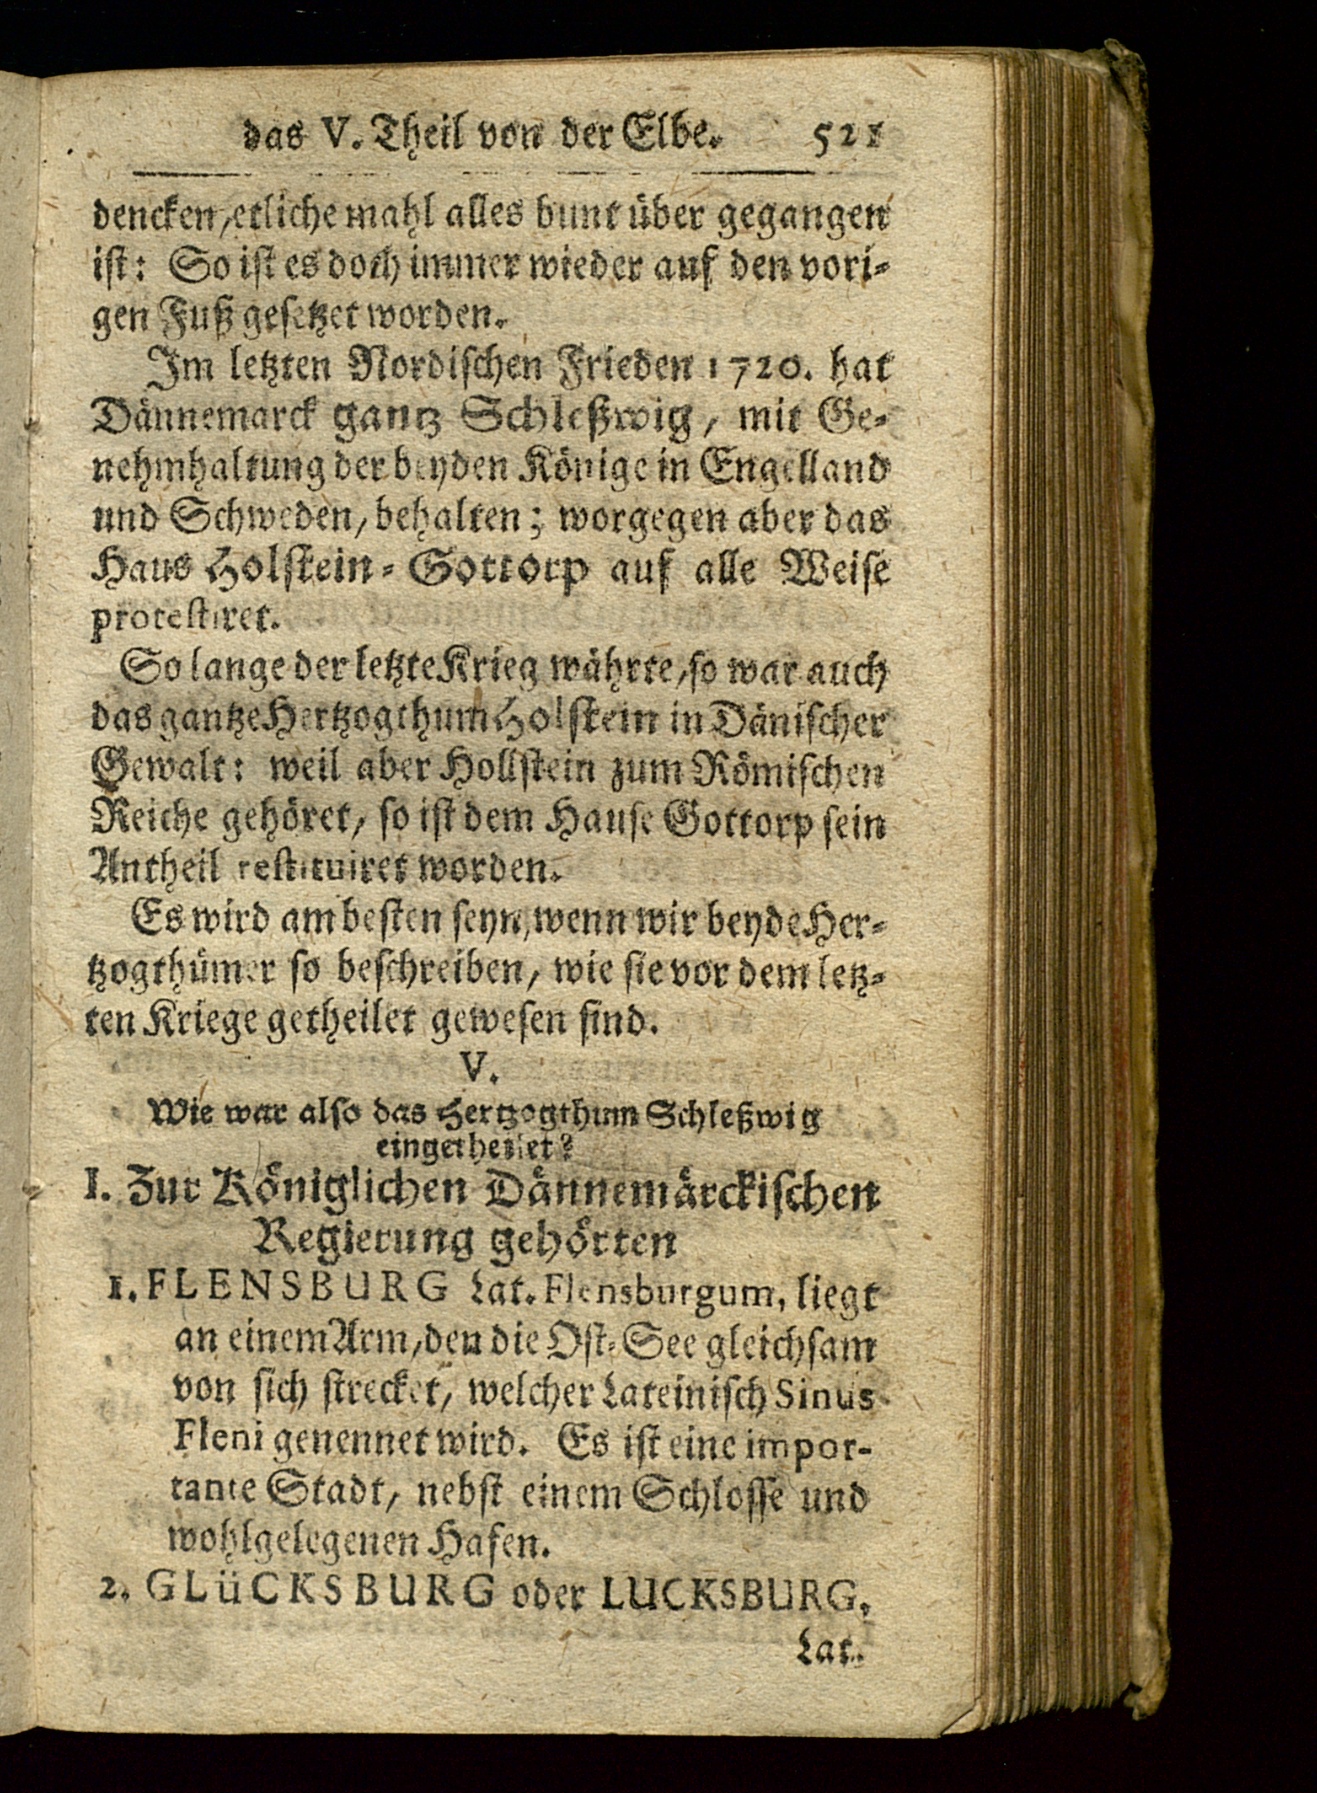 das V. Theil von der Elbe. 521
dencken, etliche mahl alles bunt über gegangen
ist: So ist es doch immer wieder auf den vori-
gen Fuß gesetzet worden.
Im letzten Nordischen Frieden 1720. hat
Dännemarck gantz Schleßwig, mit Ge-
nehmhaltung der beyden Könige in Engelland
und Schweden, behalten; worgegen aber das
Haus Holstein-Gottorp auf alle Weise
protestiret.
So lange der letzte Krieg währte, so war auch
das gantze Hertzogthum Holstein in Dänischer
Gewalt: weil aber Hollstein zum Römischen
Reiche gehöret, so ist dem Hause Gottorp sein
Antheil restituiret worden.
Es wird am besten seyn, wenn wir beyde Her-
tzogthümer so beschreiben, wie sie vor dem letz-
ten Kriege getheilet gewesen sind.
V.
Wie war also das Hertzogthum Schleßwig
eingetheilet?
I. Zur Königlichen Dännemärckischen
Regierung gehörten
1. FLENSBURG Lat. Flensburgum, liegt
an einem Arm, den die Ost-See gleichsam
von sich strecket, welcher Lateinisch Sinus
Fleni genennet wird. Es ist eine impor-
tante Stadt, nebst einem Schlosse und
wohlgelegenen Hafen.
2. GLüCKSBURG oder LUCKSBURG,
Lat.